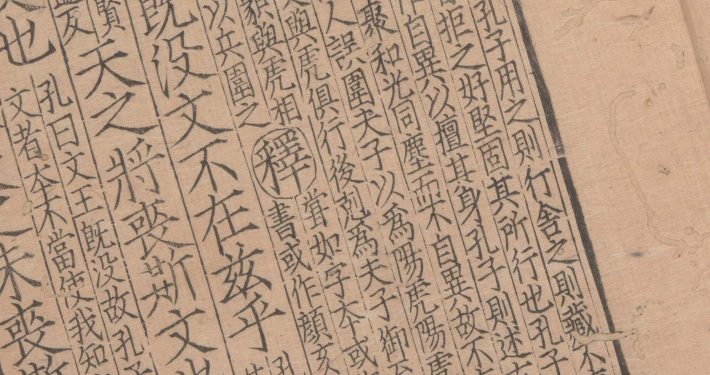 孔子用之則行舍之則藏不
拒之好堅固其所行也孔子
自異以擅其身孔子則述
聚和光同塵而不自異故不
人誤圍夫子以為陽虎陽虎
與虎俱行後剋為夫子御
貌與虎相
以兵圍之
釋
如字本或
書或作顏亥
既没文不在兹乎
天之將喪斯文
也
孔曰文王既没故孔子
文者本未當使我知
之未喪斯